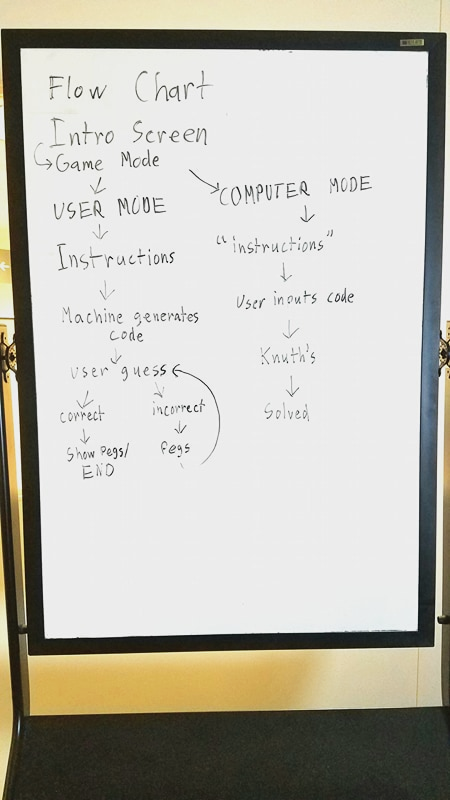 Flow Chart
Intro Screen
Game Mode
USER MODE
Instructions
Machine generates
code
user guess
correct
incorrect
Show Pegs/
END
Pegs
COMPUTER MODE
"instructions"
User inputs code
Knuth's
Solved